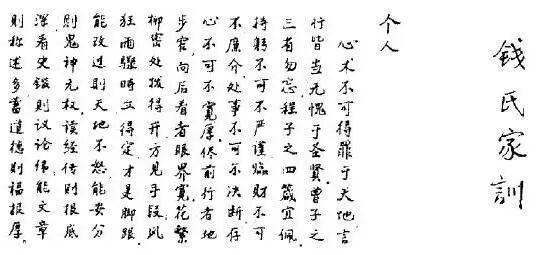 錢氏家訓
个人
心术不可得罪于天地言
行皆当无愧于圣賢曾子之
三省勿忘程子之四箴宜佩
持躬不可不严謹臨財不可
不廉介处事不可不决断存
心不可不寬厚尽前行者地
步窄向后看者眼界寬花繁
柳密处拨得开方見手段风
狂雨驟時立得定才是脚跟
能改过則天地不怒能安分
則鬼神无权读经传則根底
深看史鑑則议论偉能文章
則称述多蓄道德則福报厚